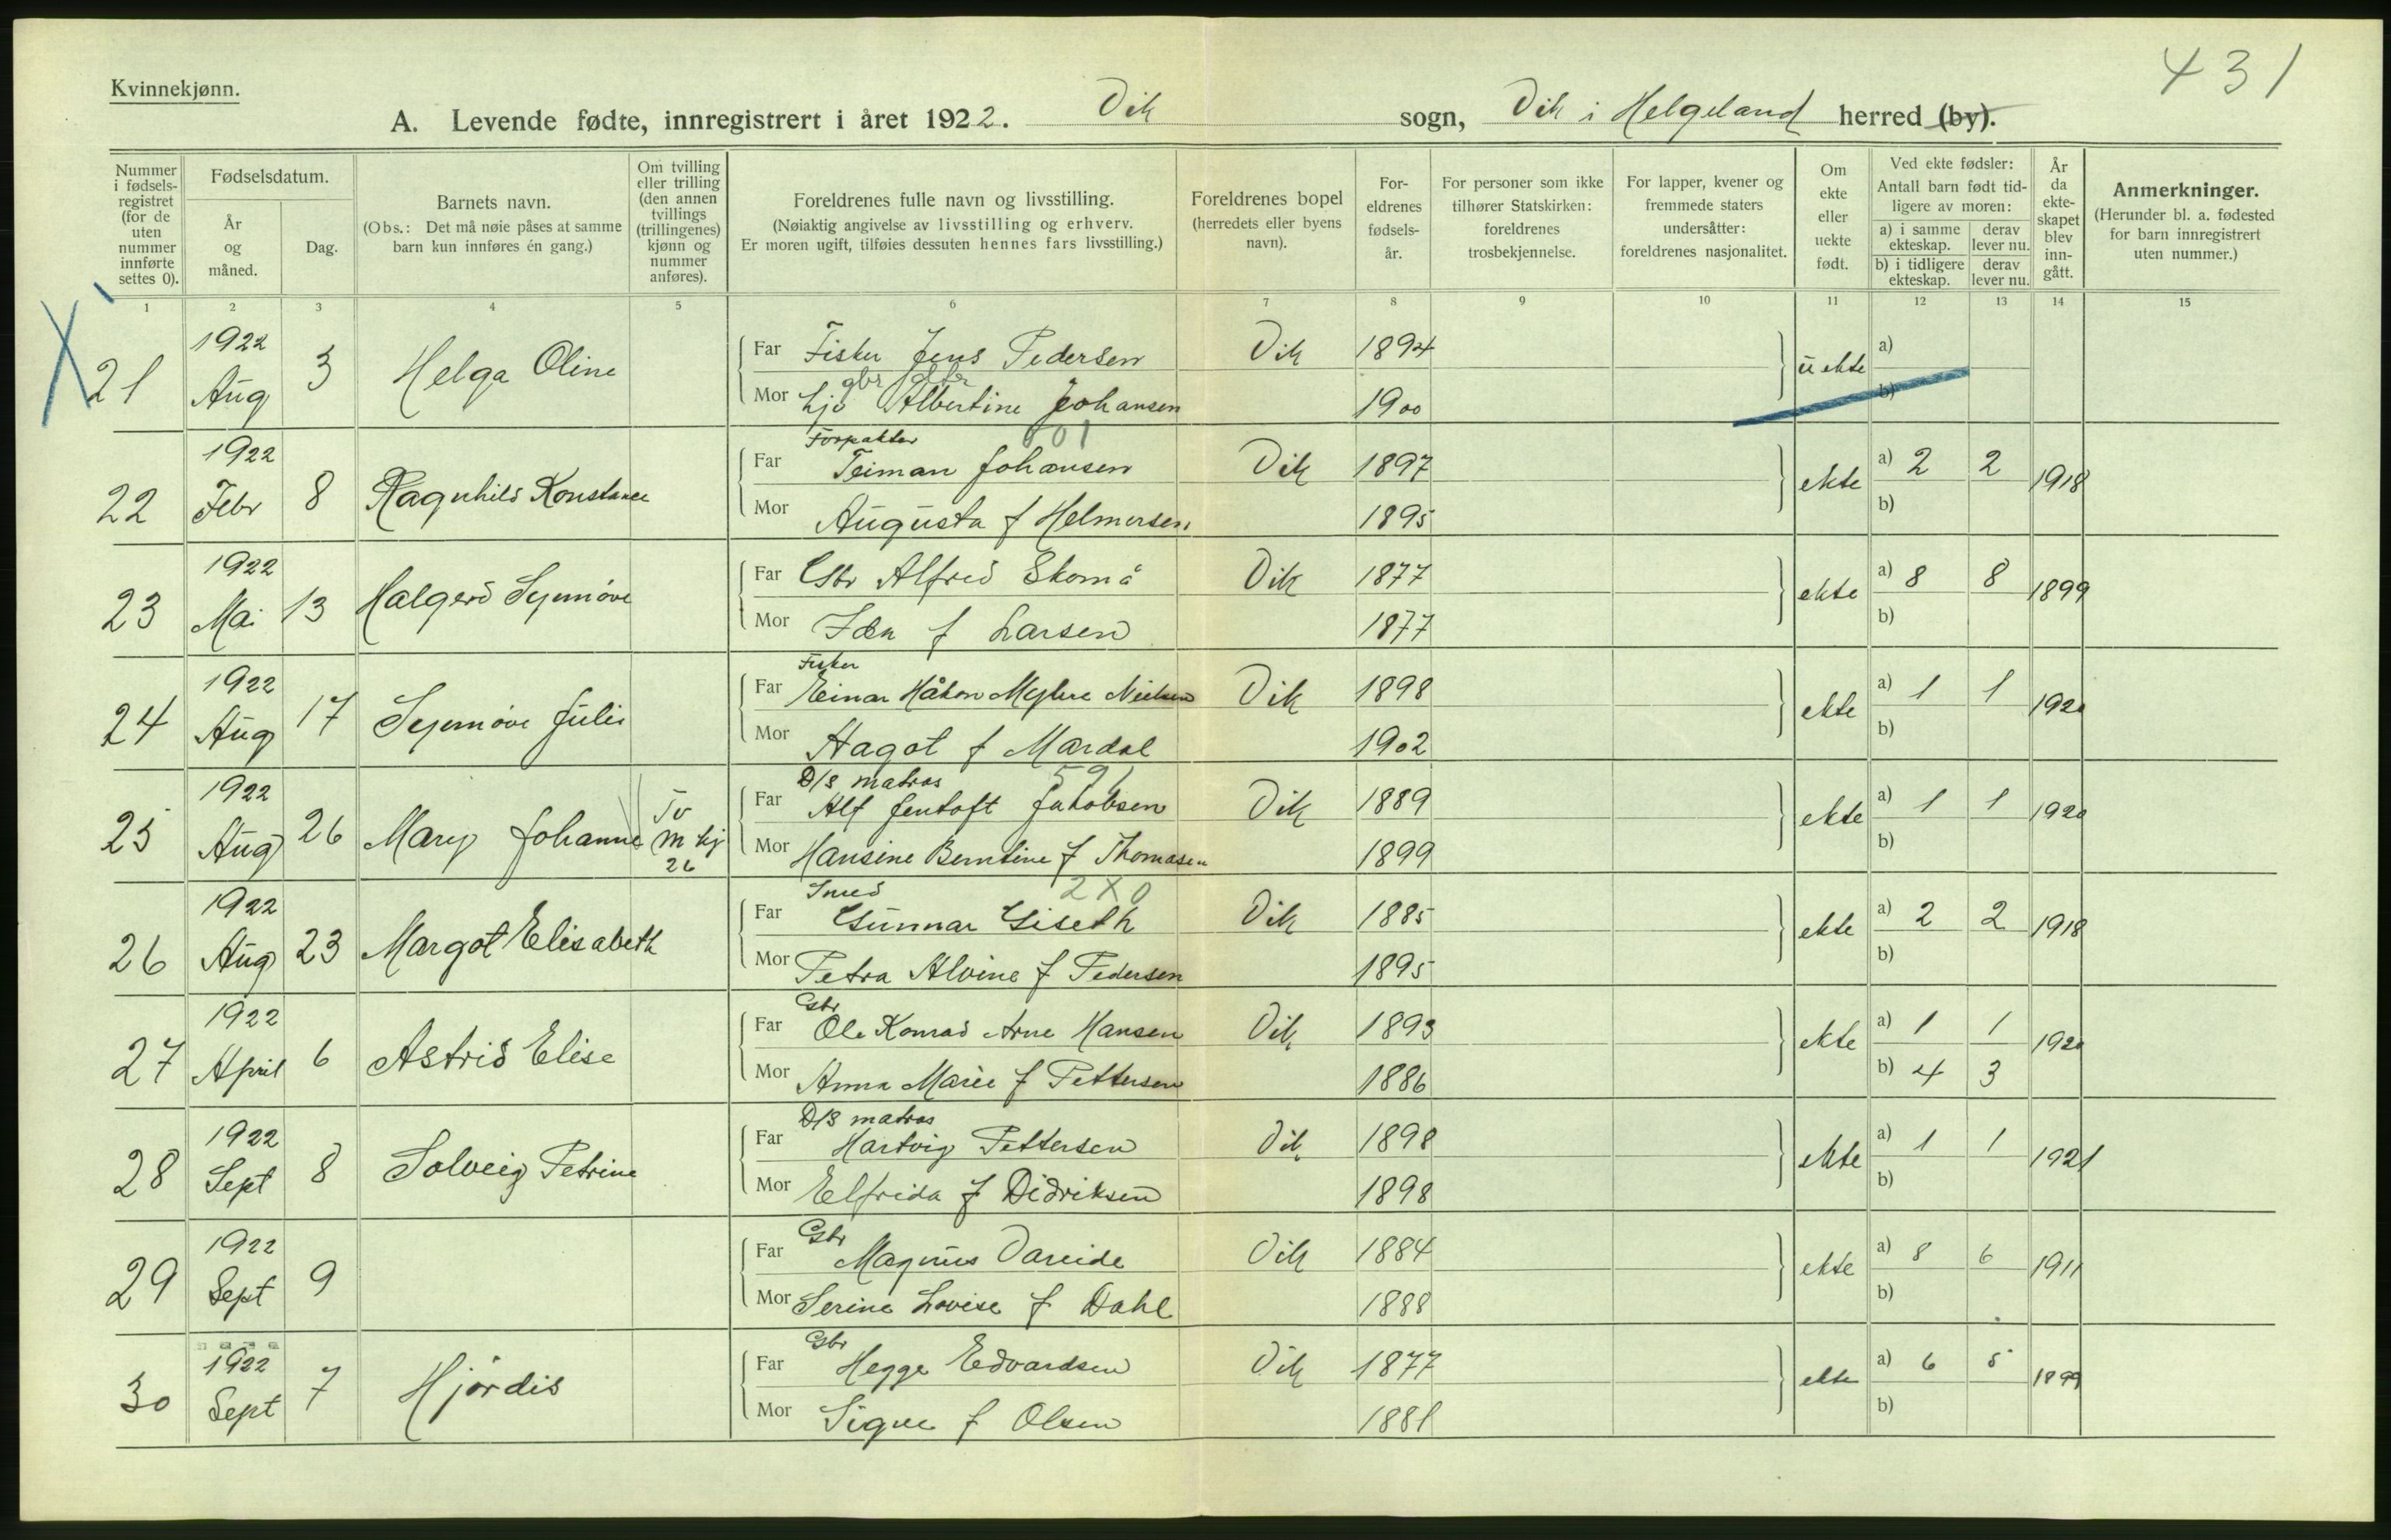 431
Kvinnekjønn.
A. Levende fødte, innregistrert i året 1922. Vik sogn, Vik i Helgeland herred (by).
Nummer i fødsels-registret (for de uten nummer innførte settes 0).
Fødselsdatum.
År og måned.
Dag.
Barnets navn.
(Obs.: Det må nøie påses at samme barn kun innføres én gang.)
Om tvilling eller trilling (den annen tvillings (trillingenes) kjønn og nummer anføres).
Foreldrenes fulle navn og livsstilling.
(Nøiaktig angivelse av livsstilling og erhverv. Er moren ugift, tilføies dessuten hennes fars livsstilling.)
Foreldrenes bopel (herredets eller byens navn).
For-eldrenes fødsels-år.
For personer som ikke tilhører Statskirken: foreldrenes trosbekjennelse.
For lapper, kvener og fremmede staters undersåtter: foreldrenes nasjonalitet.
Om ekte eller uekte født.
Ved ekte fødsler: Antall barn født tid-ligere av moren:
a) i samme ekteskap.
derav lever nu.
b) i tidligere ekteskap.
derav lever nu.
År da ekte-skapet blev inn-gått.
Anmerkninger.
(Herunder bl. a. fødested for barn innregistrert uten nummer.)
1 2 3 4 5 6 7 8 9 10 11 12 13 14 15
X 21 1922 Aug 3 Helga Oline
Far Fisker Jens Pedersen Vik 1894 uekte a)
gbr dtr
Mor Albertine Johansen 1900 b)
22 1922 Febr 8 Ragnhild Konstance
Forpakter 601
Far Teiman Johansen Vik 1897 ekte a) 2 2 1918
Mor Augusta f Helmersen 1895 b)
23 1922 Mai 13 Halgerd Synnøve
Far Gbr Alfred Skomå Vik 1877 ekte a) 8 8 1899
Mor Ida f Larsen 1877 b)
24 1922 Aug 17 Synnøve Julie
Fisker
Far Einar Håkon Myhre Nielsen Vik 1898 ekte a) 1 1 1920
Mor Aagot f Mardal 1902 b)
25 1922 Aug 26 Mary Johanne Tv m kj 26
D/S matros 591
Far Alf Jentoft Jakobsen Vik 1889 ekte a) 1 1 1920
Mor Hansine Berntine f Thomasen 1899 b)
26 1922 Aug 23 Margot Elisabeth
Smed 2X0
Far Gunnar Giseth Vik 1885 ekte a) 2 2 1918
Mor Petra Alvine f Pedersen 1895 b)
27 1922 April 6 Astrid Elise
Gbr
Far Ole Konrad Arne Hansen Vik 1893 ekte a) 1 1 1920
Mor Anna Marie f Pettersen 1886 b) 4 3
28 1922 Sept 8 Solveig Petrine
D/S matros
Far Hartvig Pettersen Vik 1898 ekte a) 1 1 1921
Mor Elfrida f Didriksen 1898 b)
29 1922 Sept 9
Gbr
Far Magnus Vareide Vik 1884 ekte a) 8 6 1911
Mor Serine Lovise f Dahl 1888 b)
30 1922 Sept 7 Hjørdis
Gbr
Far Hegge Edvardsen Vik 1877 ekte a) 6 5 1899
Mor Signe f Olsen 1881 b)